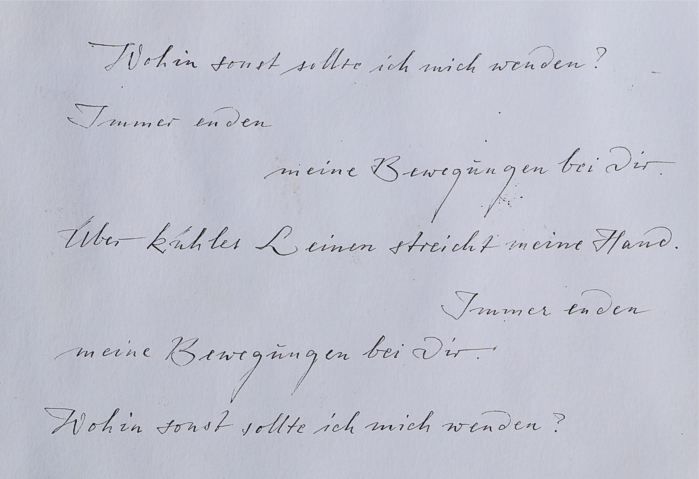 Wohin sonst sollte ich mich wenden?
Immer enden
meine Bewegungen bei Dir.
Über kühles Leinen streicht meine Hand.
Immer enden
meine Bewegungen bei Dir.
Wohin sonst sollte ich mich wenden?